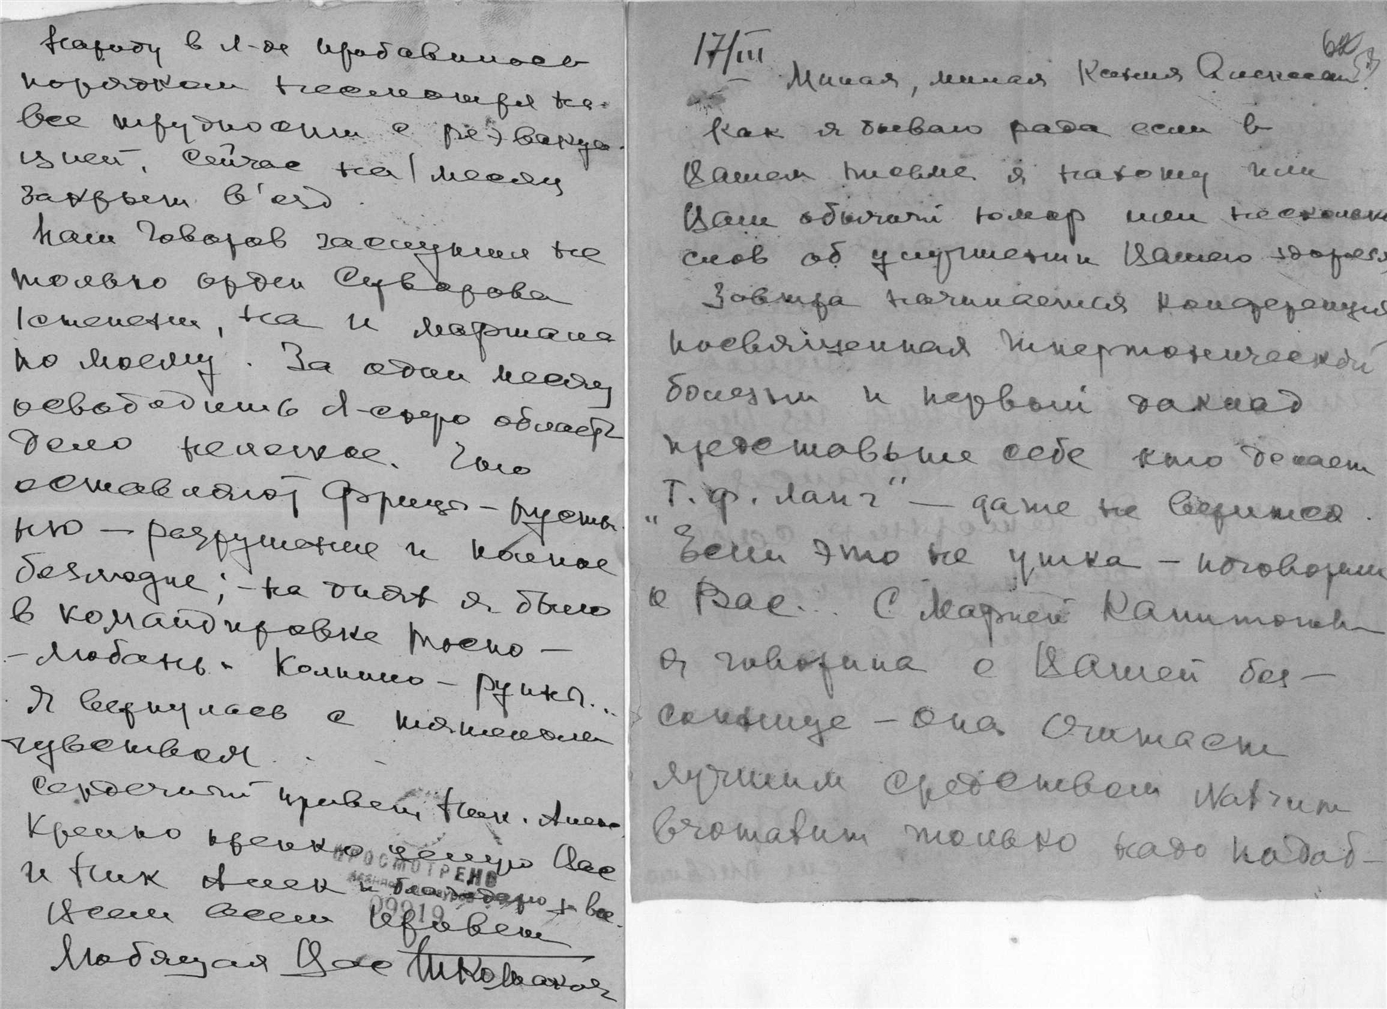 Народу в Л-де прибавилось
порядком несмотря на
все трудности с реэвакуа-
цией, сейчас на 1 месяц
закрыт в'езд.
Наш Говоров заслужил не
только орден Суворова
1 степени, но и маршала
по моему. За один месяц
освободить Л-скую область
дело нелегкое. Что
оставляют фрицы – пусты-
ню – разрушение и полное
безлюдие; – на днях я была
в командировке Тосно –
– Любань – Колпино – руины...
Я вернулась с тяжелым
чувством...
Сердечный привет Ник. Алек.
Крепко крепко целую Вас
и Ник Алек и благодарю за все.
Всем всем привет
Любящая Вас
ПРОСМОТРЕНО
09919
17/III
Милая, милая Ксения Александ.
Как я бываю рада если в
Вашем письме я нахожу или
Ваш обычный юмор или несколько
слов об улучшении Вашего здоровья
Завтра начинается конференция
посвященная гипертонической
болезни и первый доклад
представьте себе кто делает
"Г. Ф. Ланг" – даже не верится.
"Если это не утка – поговорим
о Вас... С Марией Капитонов–
я говорила о Вашей бес–
соннице – она считает
лучшим средством Natrium
bromatum только надо подоб–